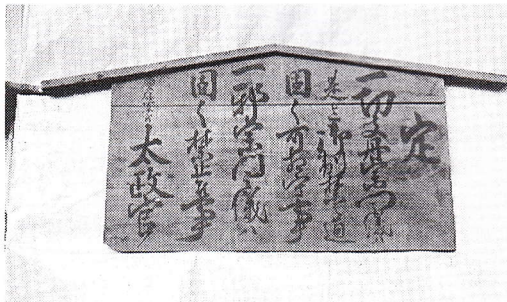 定
一切支丹宗門之儀ハ
是迄御制禁之通
固く可相守事
一邪宗門之儀ハ
固く禁止之事
太政官